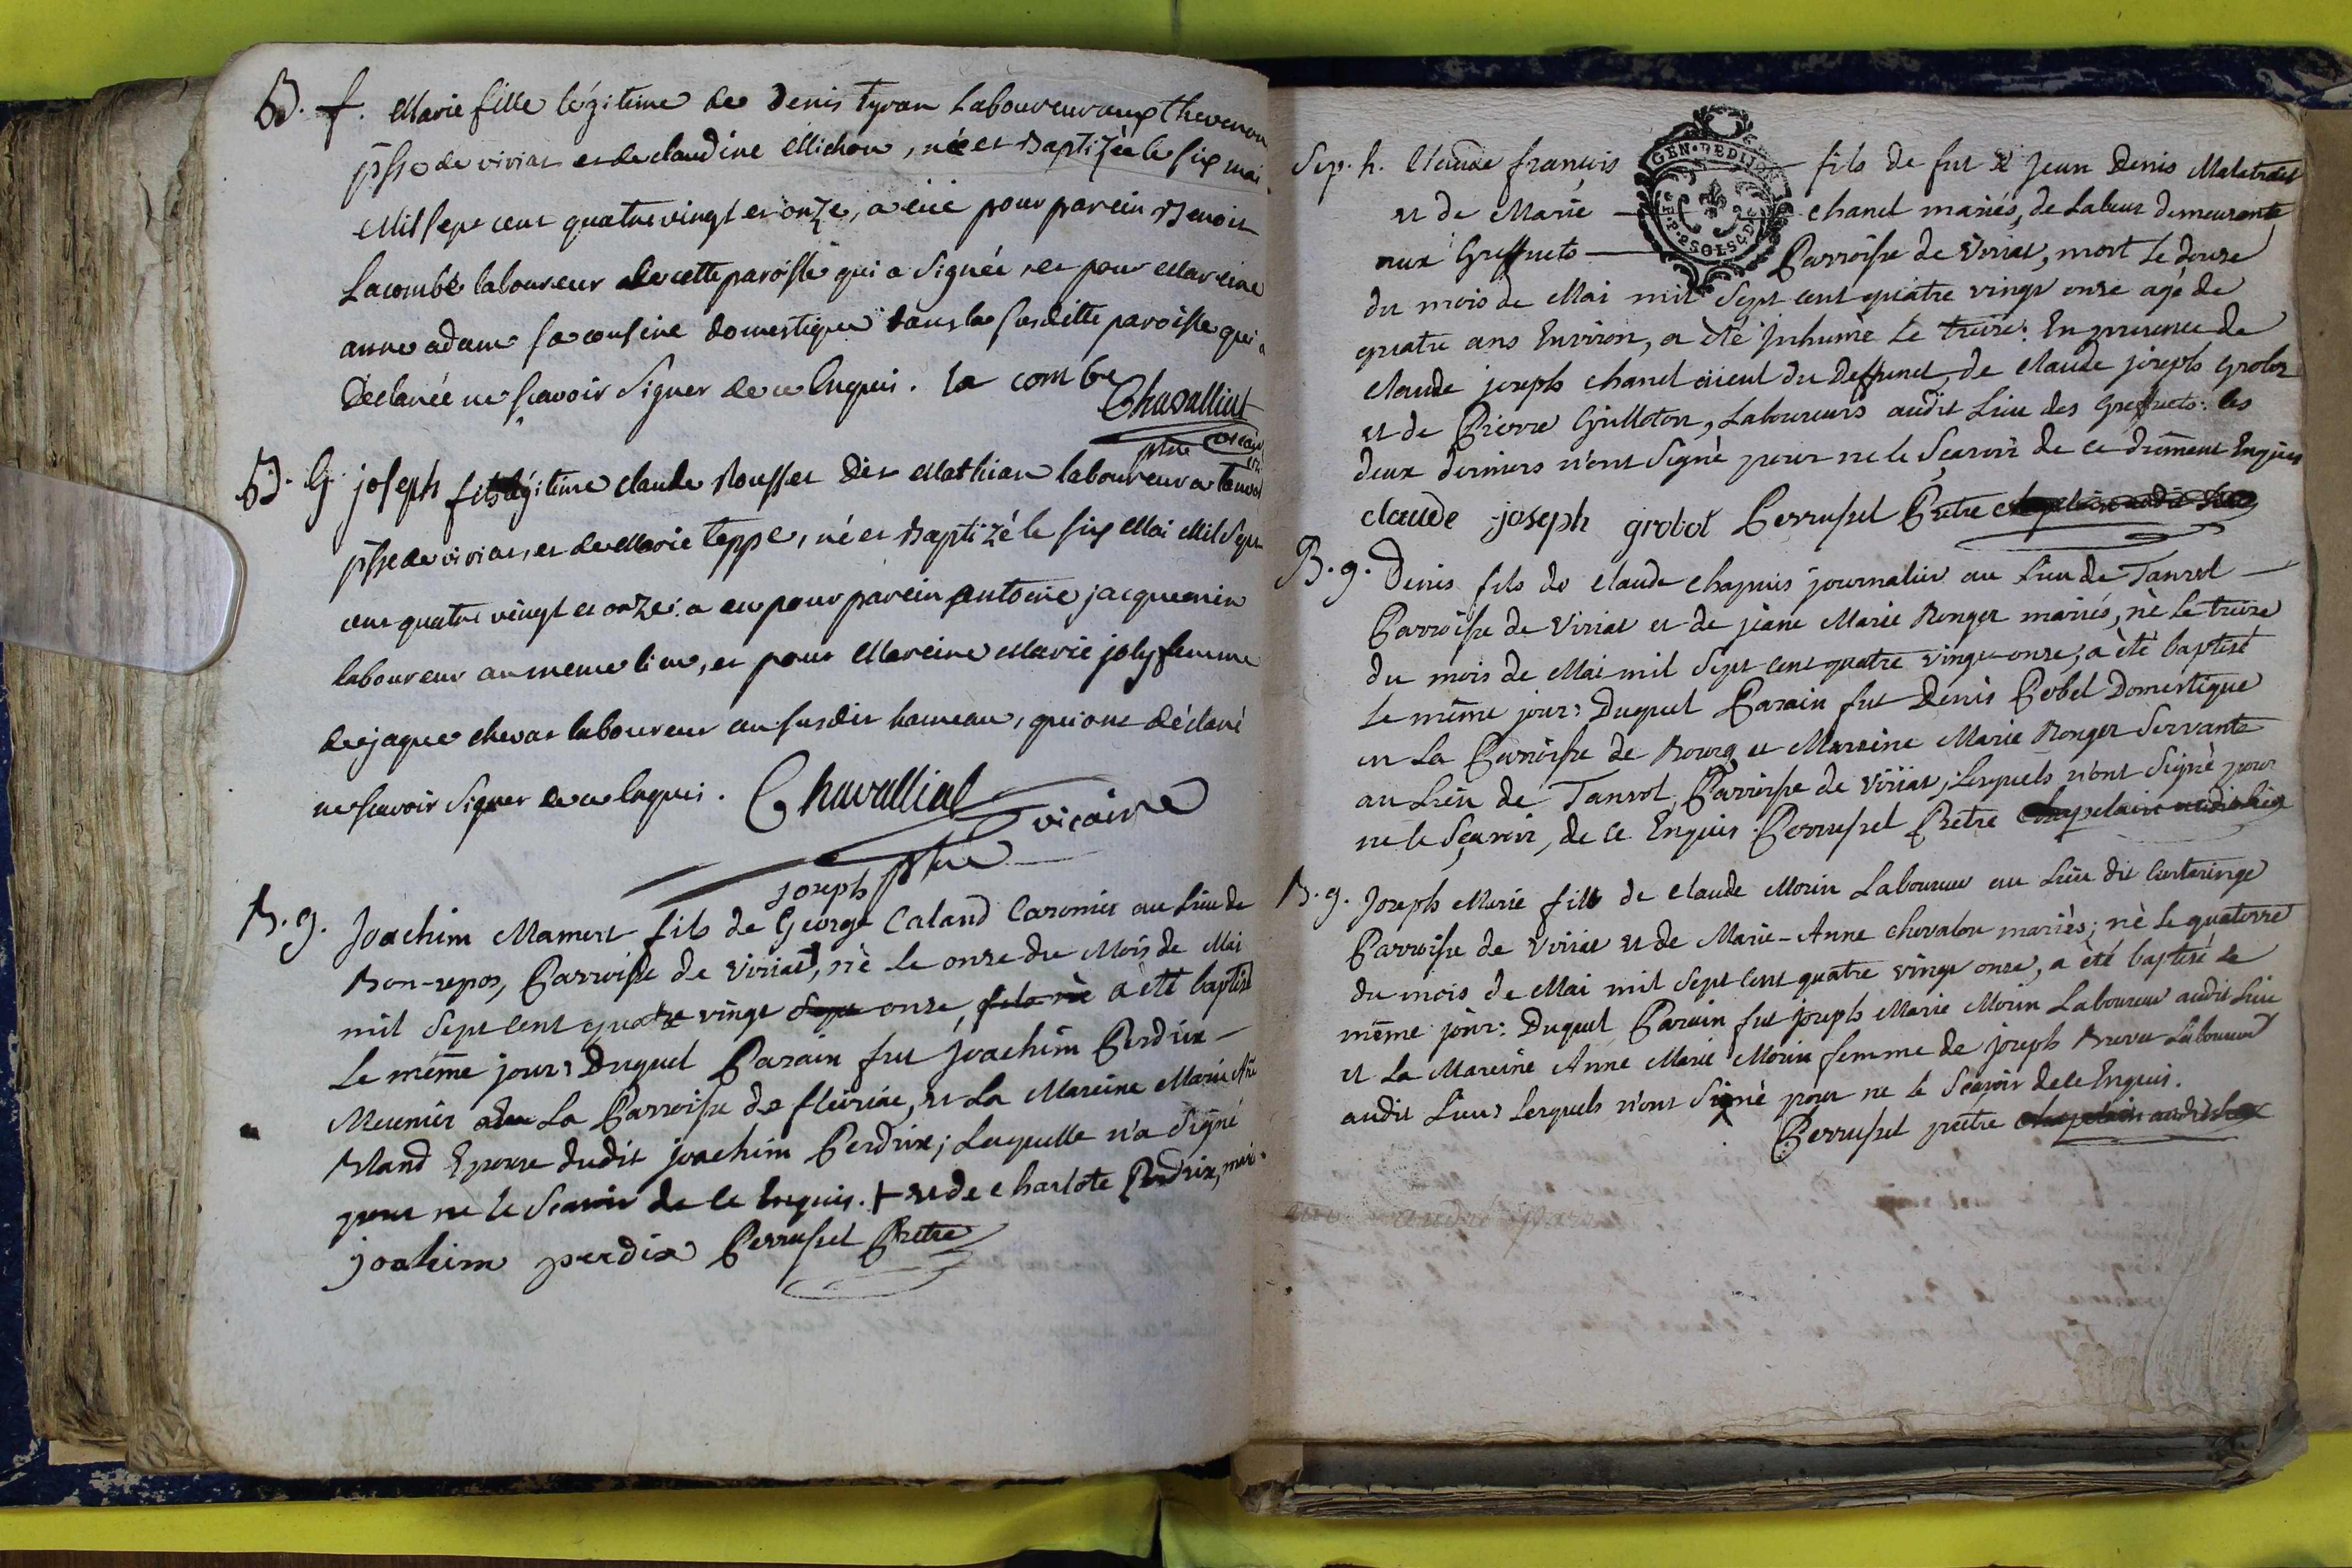 B. f. Marie fille légitime de Denis Tyran Laboureur aux thevenon
psse de viriat et de claudine Michon, née et Baptisée le six mai
Mil sept cent quatre vingt et onze, a eue pour parein Benoit
Lacombe laboureur de cette paroisse qui a signée, et pour Mareine
anne adam sa cousine domestique dans la susditte paroisse qui a
Déclarée ne scavoir signer de ce Enquis. la combe
Chavalliat
ptre vicaire
B. G. joseph fils légitime claude Rousset dit Mathian laboureur a tanvol
psse de viriat, et de Marie teppe, né et Baptizé le six Mai Mil Sept
cent quatre vingt et onze: a eu pour parein antoine jacquemin
laboureur au meme lieu, et pour Mareine Marie joly femme
de jaque chevat laboureur au susdit hameau, qui ont déclaré
ne scavoir signer de ce Enquis. Chavalliat
vicaire
ptre
joseph
B. g. Joachim Mamert fils de George Caland Casernier au Lieu de
Bon-repos, Parroisse de Viriat, né le onze du Mois de Mai
mil Sept Cent quatre vingt Sept onze, fils né a été baptisé
Le même jour: Duquel Parain fut Joachim Perdrix
Meunier de La Parroisse de fleiriat, et La Mareine Marie
Bland Epouse dudit joachim Perdrix; Laquelle n'a Signé
pour ne le Scavoir de Ce Enquis. + et de charlote Perdrix, mari
joahim perdix Perrusset Pretre
Sep. h. Claude françois fils de fut Jean Denis Malatrait
GEN. DE DIJON
et de Marie chanel mariés, de Labeur demeurants
aux Greffets Parroisse de Viriat, mort Le douze
du mois de Mai mil Sept cent quatre vingt onze agé de
quatre ans Environ, a été Inhumé Le treize: En presence de
Claude joseph chanel aïeul du Deffunct, de Claude joseph Grobot
et de Pierre Grilloton, Laboureurs audit Lieu des Greffets: les
deux derniers n'ont Signé pour ne le Sçavoir de ce drement Enquis
claude joseph grobot Perrusset Prêtre chapelain audit Lieu
B. g. Denis fils de Claude Chapuis journalier au Lieu de Tanvol
Parroisse de Viriat et de jeane Marie Ronger mariés, né le treize
du mois de Mai mil Sept cent quatre vingt onze, a été baptisé
Le même jour: Duquel Parain fut Denis Pobel Domestique
en La Parroisse de Bourg et Mareine Marie Ronger Servante
au Lieu de Tanvol, Parroisse de Viriat, Lesquels n'ont Signé pour
ne le Sçavoir, de Ce Enquis Perrusset Prêtre chapelain audit lieu
B. g. Joseph Marie fils de Claude Morin Laboureur au Lieu dit Curtaringe
Parroisse de Viriat et de Marie-Anne chevalon mariés; né Le quatorze
du mois de Mai mil Sept Cent quatre vingt onze, a été baptisé Le
même jour: Duquel Parain fut joseph Marie Morin Laboureur audit Lieu
et La Mareine Anne Marie Morin femme de joseph Brevet Laboureur
audit Lieu: Lesquels n'ont Signé pour ne le Scavoir de Ce Enquis.
Perrusset prêtre chapelain audit Lieu